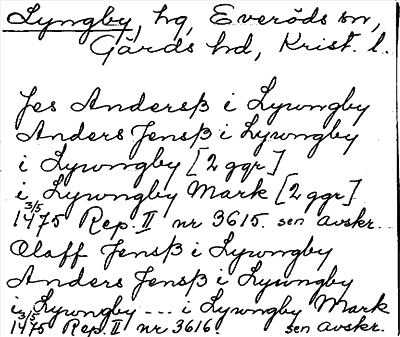 Lyngby, hg, Everöds sn,
Gärds hd, Krist. l.
Jes Andersß i Lywngby
Anders Jensß i Lywngby
i Lywngby [2 ggr]
i Lywngby Mark [2 ggr]
3/5 1475 Rep. II nr 3615. sen avskr.
Olaff Jensß i Lywngby
Anders Jensß i Lywngby
i Lywngby --- i Lywngby Mark
3/5 1475 Rep. II nr 3616. sen avskr.